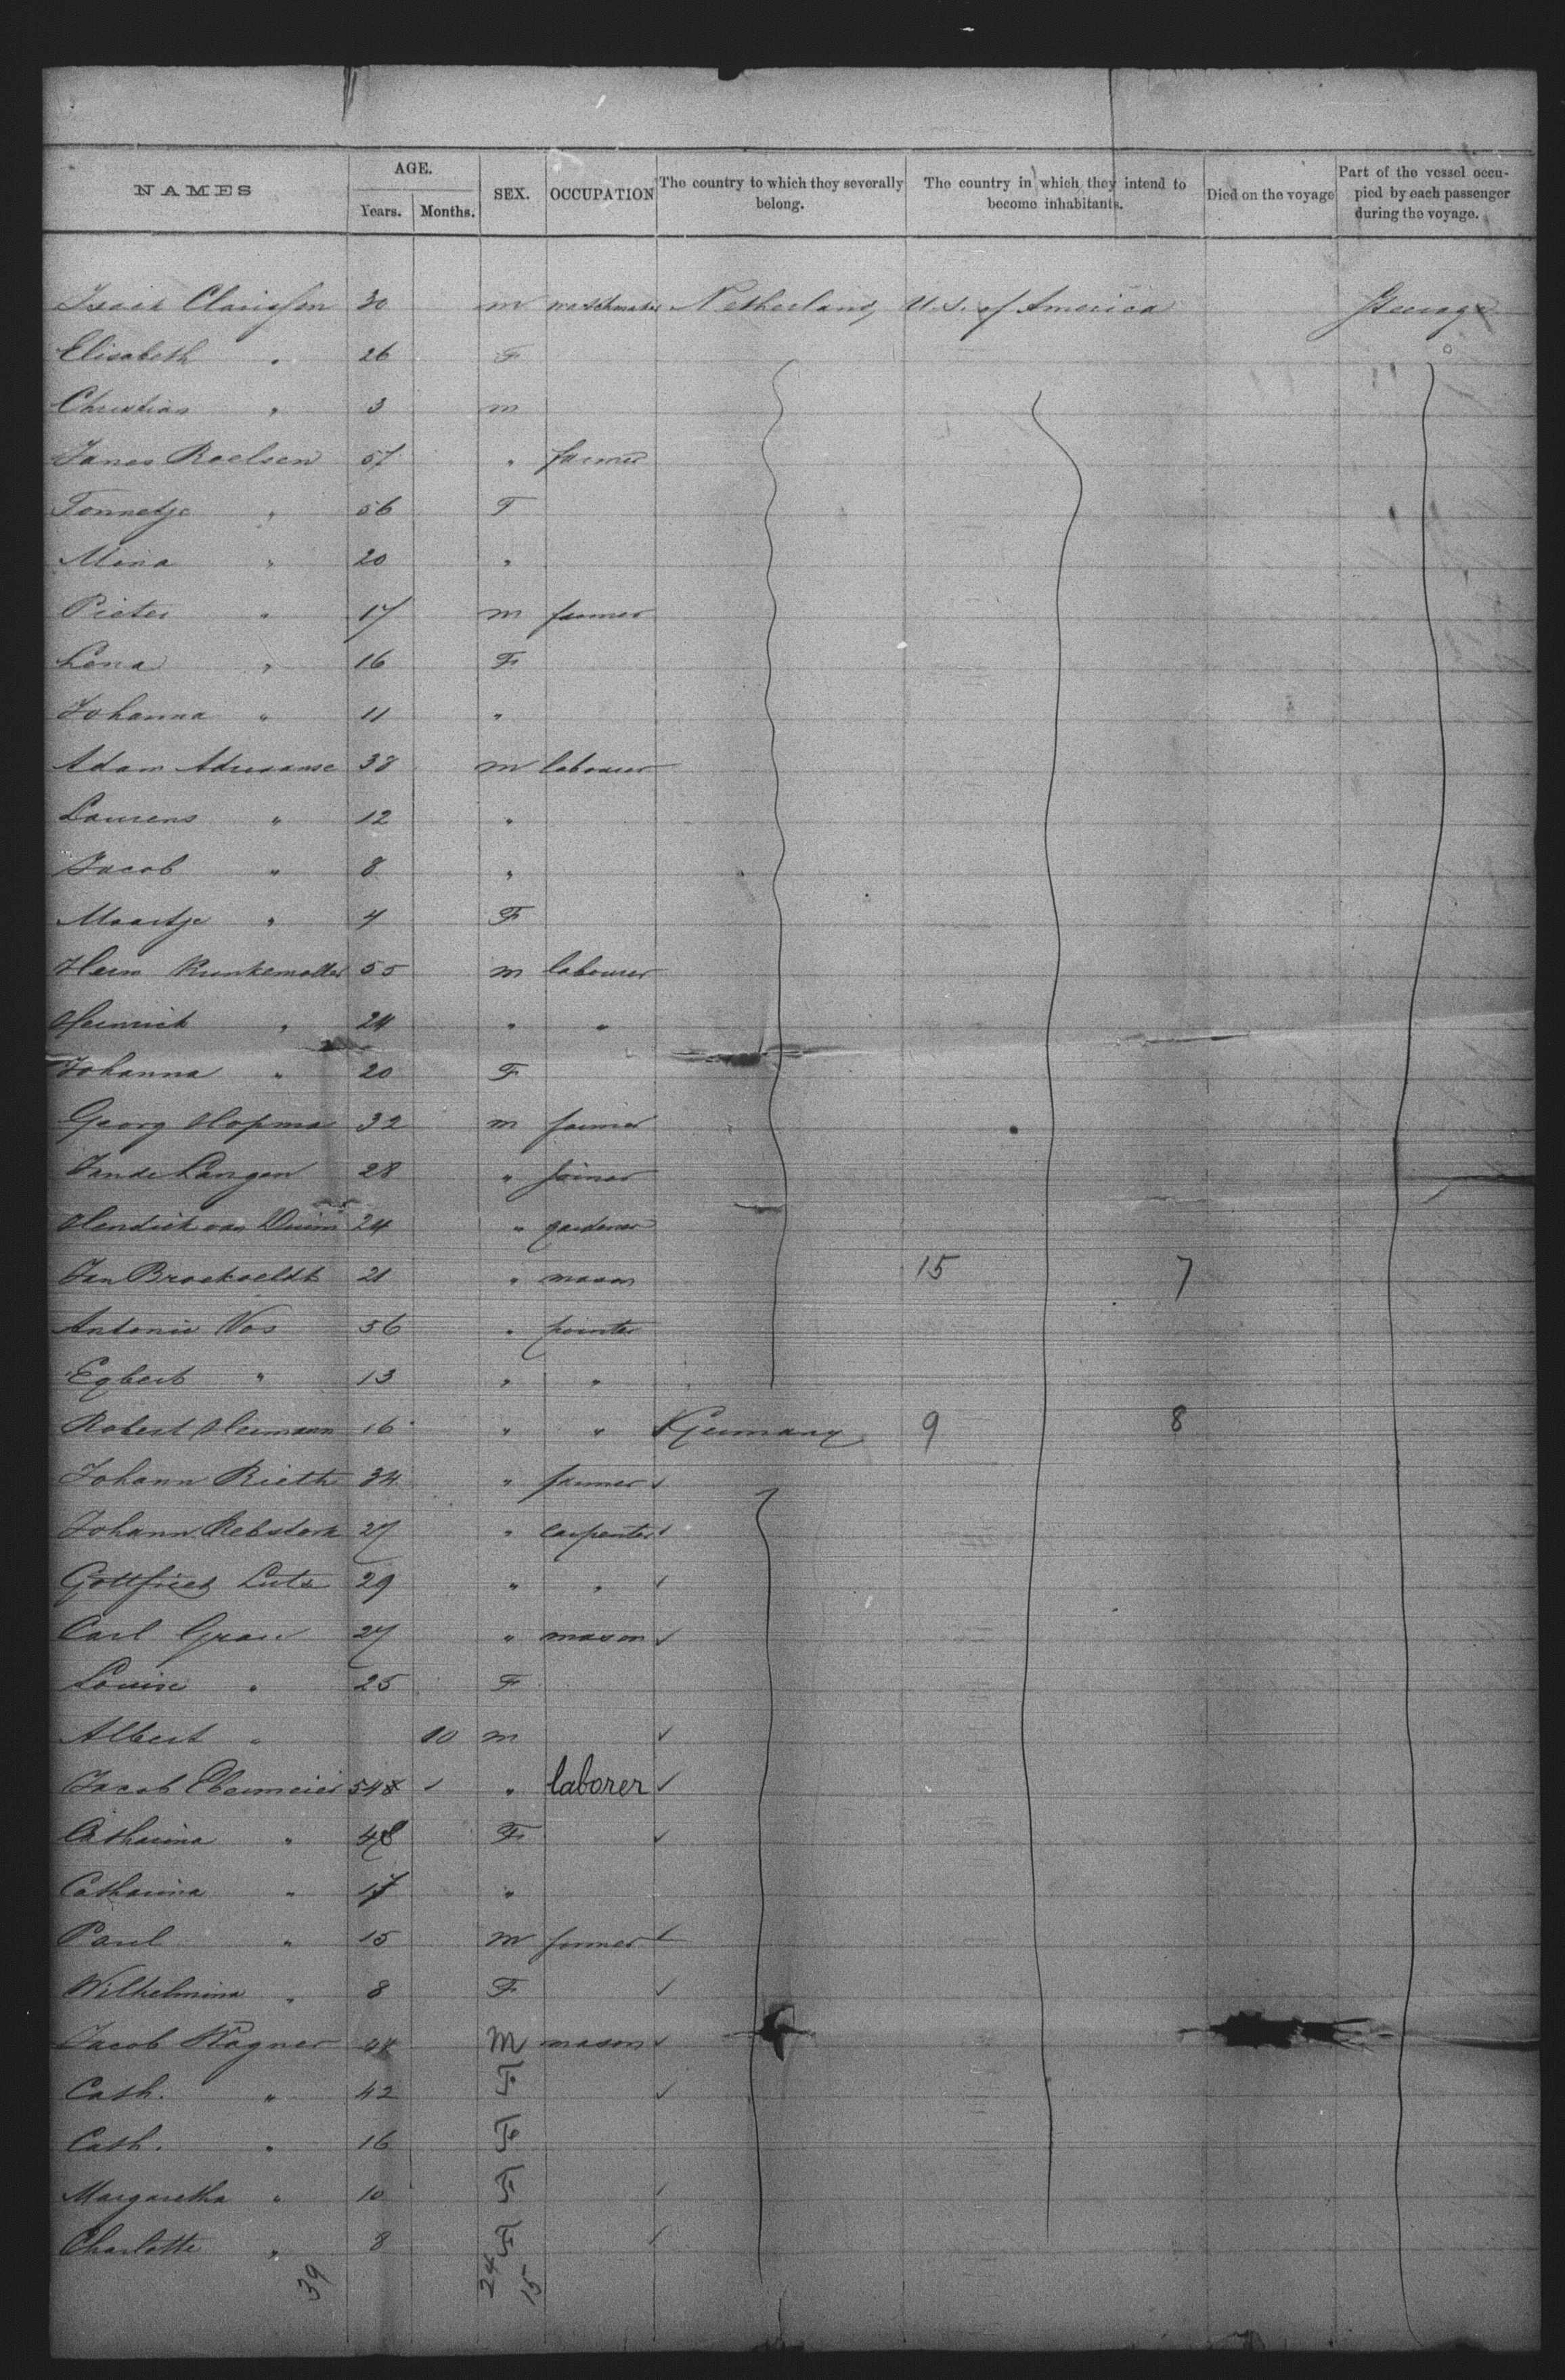 NAMES AGE. Years. Months. SEX. OCCUPATION The country to which they severally belong. The country in which they intend to become inhabitants. Died on the voyage Part of the vessel occupied by each passenger during the voyage.
Isaak Clarissen 30 m watchmaker Netherland, U.S. of America Steerage
Elisabeth " 26 F
Christian " 3 m
Janes Roelsen 57 " farmer
Tonnetje " 56 F
Mina " 20 "
Pieter " 17 m farmer
Lena " 16 F
Johanna " 11 "
Adam Adriaanse 38 m labourer
Laurens " 12 "
Jacob " 8 "
Maartje " 4 F
Herm 55 m labourer
Heinrich " 24 " "
Johanna " 20 F
Georg Hopma 32 m farmer
Jan de Langen 28 "
Hendrik van 24 " gardener
Jan 21 " mason 15 7
Antonie Vos 56 " painter
Egbert " 13 " "
Robert Hermann 16 " " Germany 9 8
Johann Rieth 34 " farmer ✓
Johann Rebstock 27 " carpenter ✓
Gottfried Lutz 29 " " ✓
Carl Grau 27 " mason ✓
Louise " 25 F
Albert " 10 m ✓
Jacob Ebermeier 54 ✓ " laborer ✓
Catharina " 48 F ✓
Catharina " 17 "
Paul " 15 m farmer ✓
Wilhelmina " 8 F ✓
Jacob Wagner 44 M mason ✓
Cath. " 42 F ✓
Cath. " 16 F
Margaretha " 10 F ✓
Charlotte " 8 F ✓
39 24 15